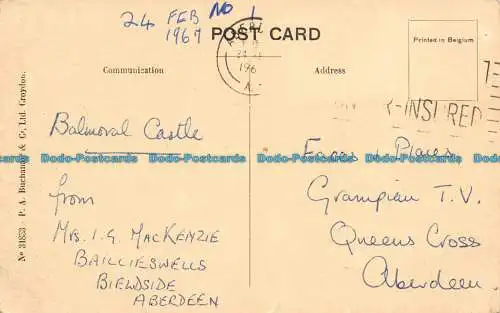 24 FEB No 1
1967
POST CARD
Printed in Belgium
Communication
Address
196
-INSURED
Balmoral Castle
from
MRS. I. G. MACKENZIE
BAILLIESWELLS
BIELDSIDE
ABERDEEN
Faces & Places
Grampian T.V.
Queens Cross
Aberdeen.
Nº 31833 - P. A. Buchanan & Co. Ltd. Croydon.
Dodo-Postcards Dodo-Postcards Dodo-Postcards Dodo-Postcards Dodo-Postcards
Dodo-Postcards Dodo-Postcards Dodo-Postcards Dodo-Postcards Dodo-Postcards